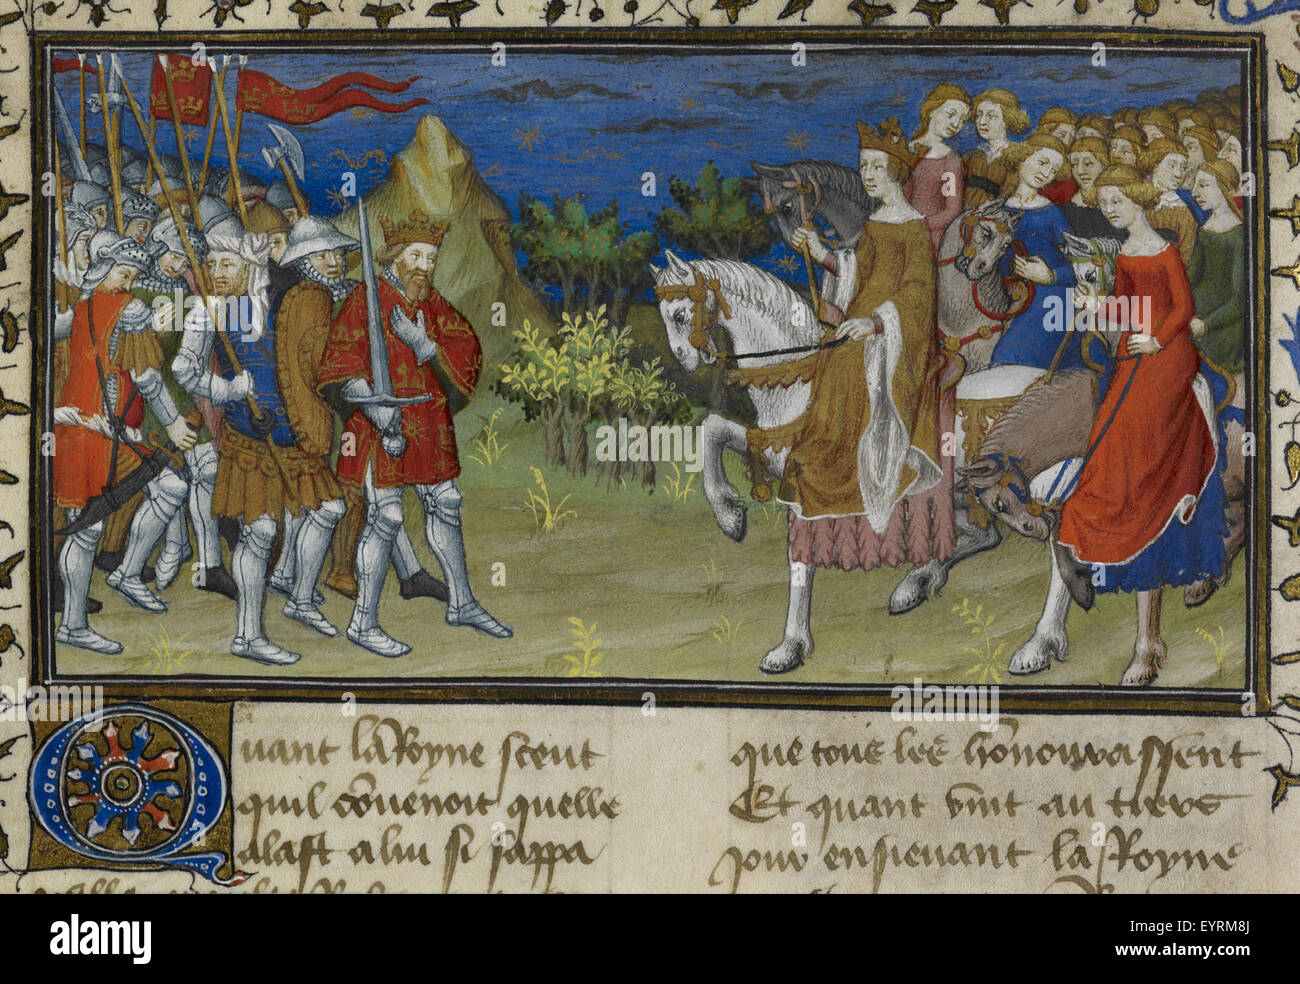 Quant la Royne scent
quil covenoit quelle
alast a lui si sappa
que tous les honourassent
Et quant vint au tiers
jour ensievant la Royne
alamy stock photo
EYRM8J
www.alamy.com